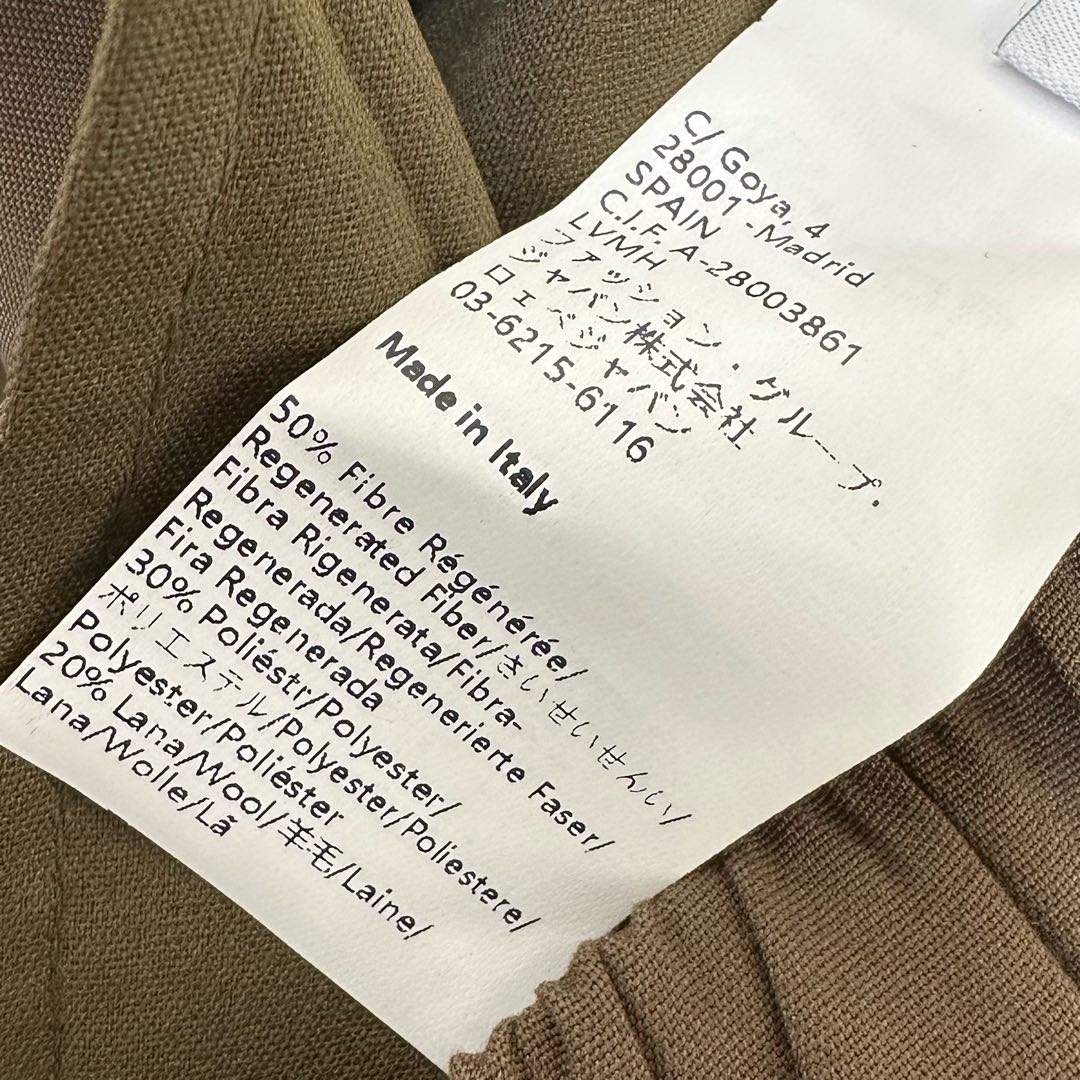 C/ Goya, 4
28001 -Madrid
SPAIN
C.I.F. A-28003861
LVMH
ファッション・グループ.
ジャパン株式会社
ロエベジャパン
03-6215-6116
Made in Italy
50% Fibre Régénérée/
Regenerated Fiber/さいせいせんい/
Fibra Rigenerata/Fibra-
Regenerada/Regenerierte Faser/
Fira Regenerada
30% Poliéstr/Polyester/
ポリエステル/Polyester/Poliestere/
Polyester/Poliéster
20% Lana/Wool/羊毛/Laine/
Lana/Wolle/Lã